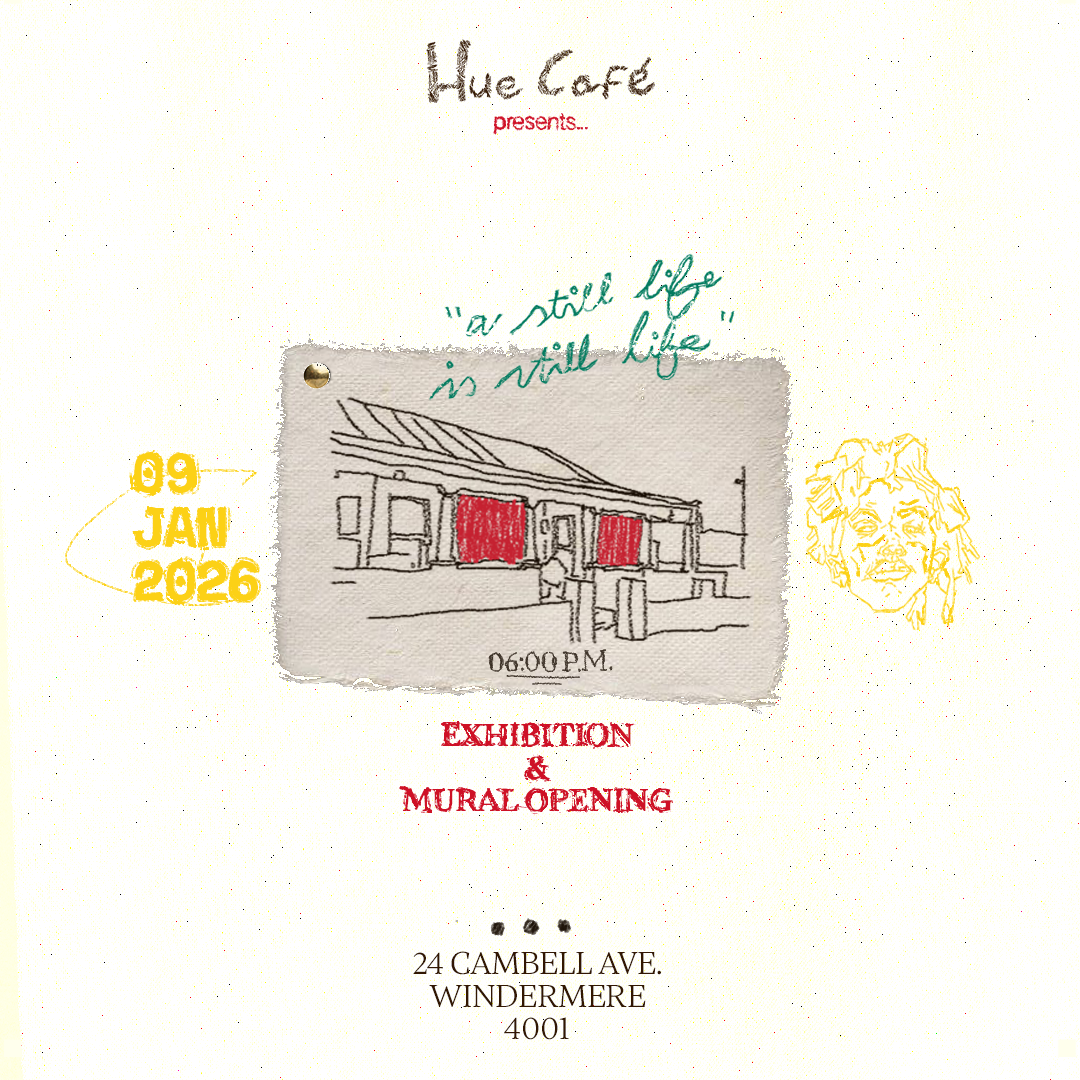 Hue Café
presents...
"a still life
is still life"
09
JAN
2026
06:00 P.M.
EXHIBITION
&
MURAL OPENING
24 CAMBELL AVE.
WINDERMERE
4001